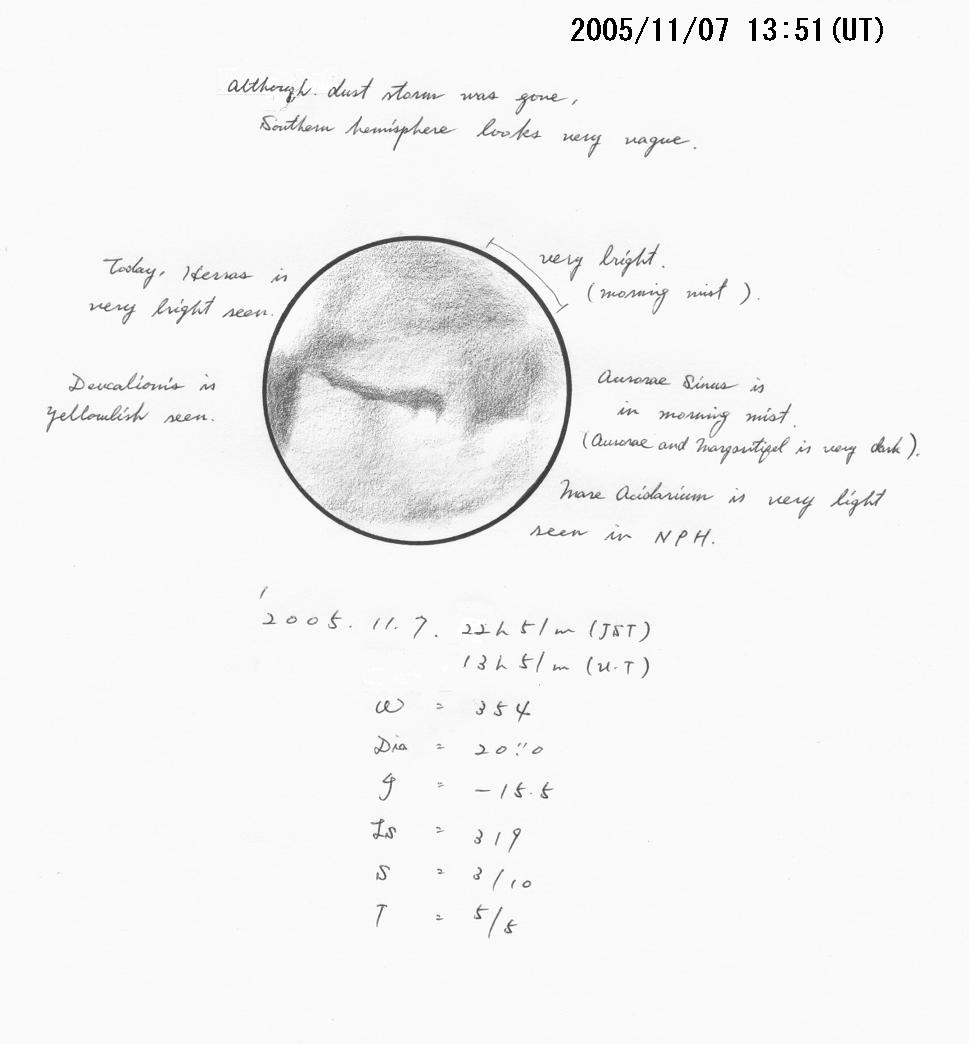 2005/11/07 13:51(UT)
Although dust storm was gone,
Southern hemisphere looks very vague.
Today, Herras is
very bright seen.
very bright.
(morning mist).
Deucalionis is
yellowlish seen.
Aurorae Sinus is
in morning mist.
(Aurorae and Margaritifel is very dark).
Mare Acidarium is very light
seen in NPH.
2005. 11. 7. 22h 51m (JST)
13h 51m (U.T)
ω = 354
Dia = 20".0
φ = -15.5
Ls = 319
S = 3/10
T = 5/5